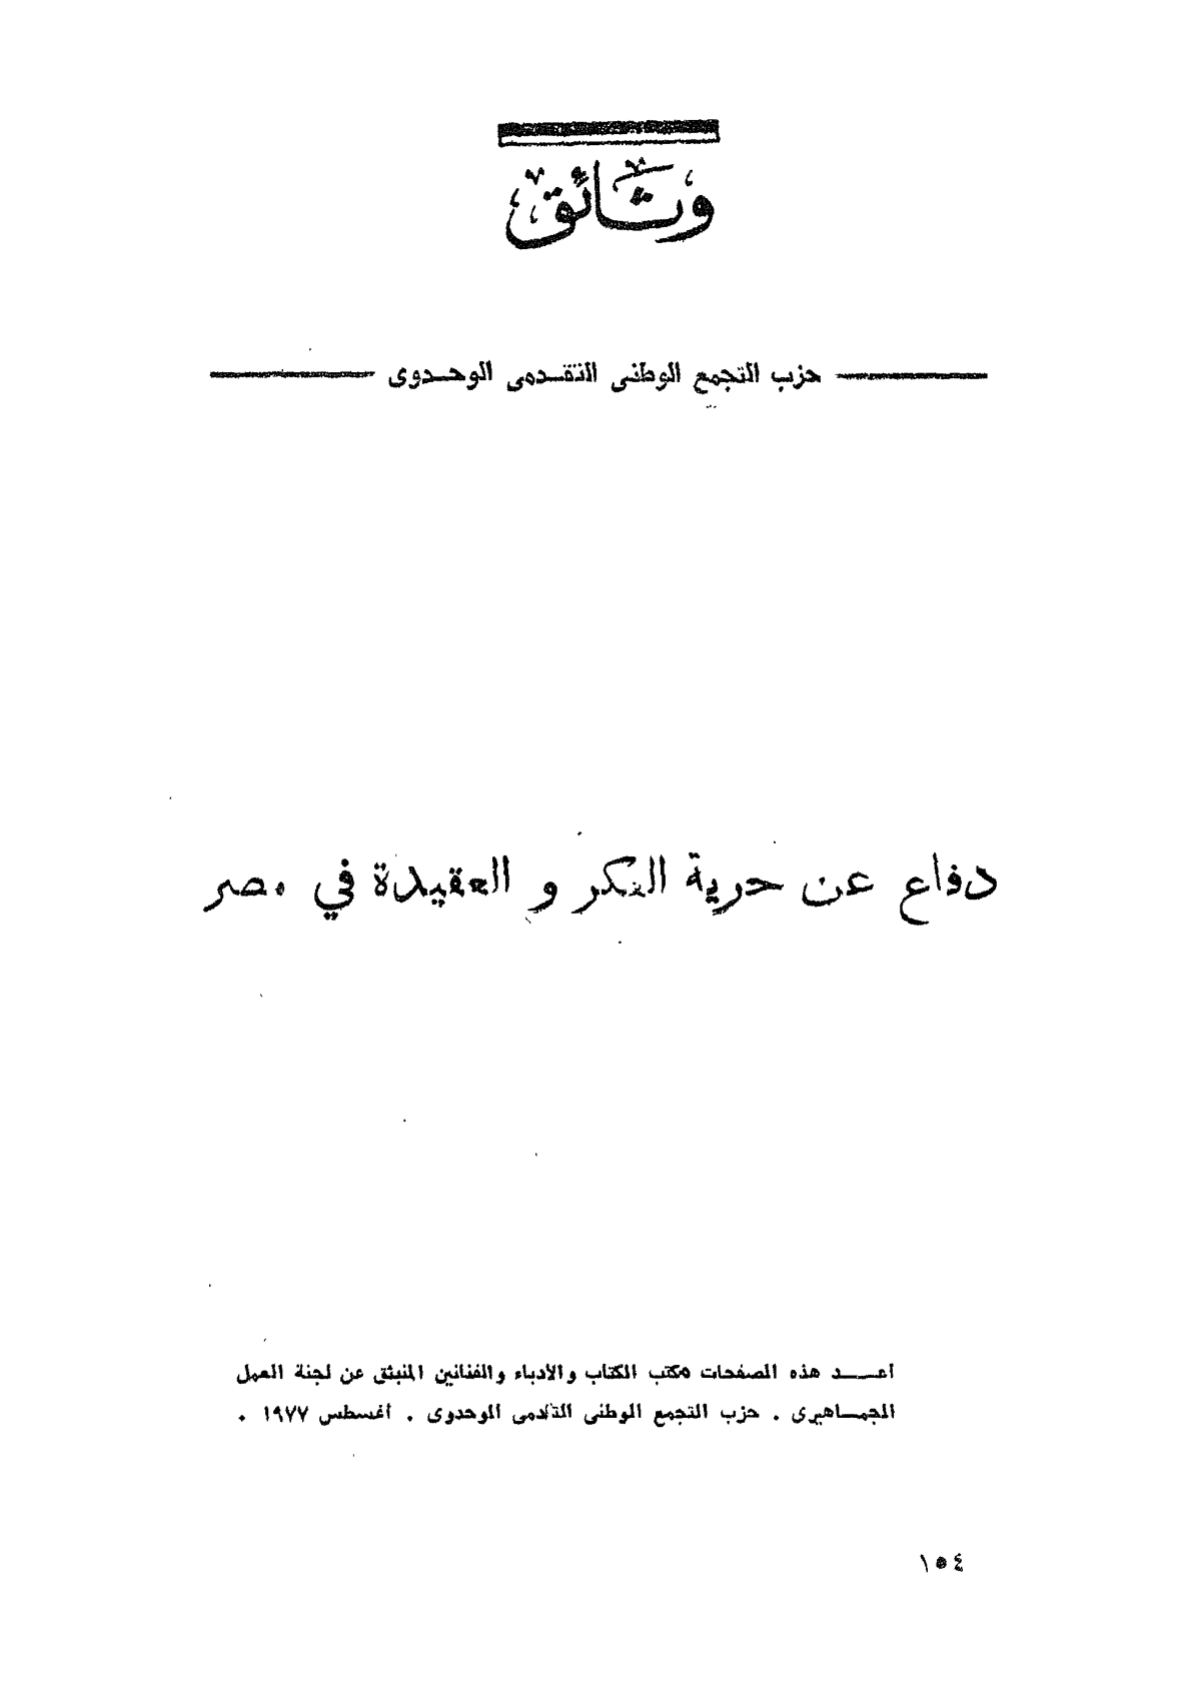 وثائق
حزب التجمع الوطنى التقـدمى الوحـدوى
دفاع عن حرية الفكر و العقيدة في مصر
أعـــد هذه الصفحات مكتب الكتاب والأدباء والفنانين المنبثق عن لجنة العمل
الجمـاهيرى . حزب التجمع الوطنى التقدمى الوحدوى . أغسطس ١٩٧٧ .
١٥٤